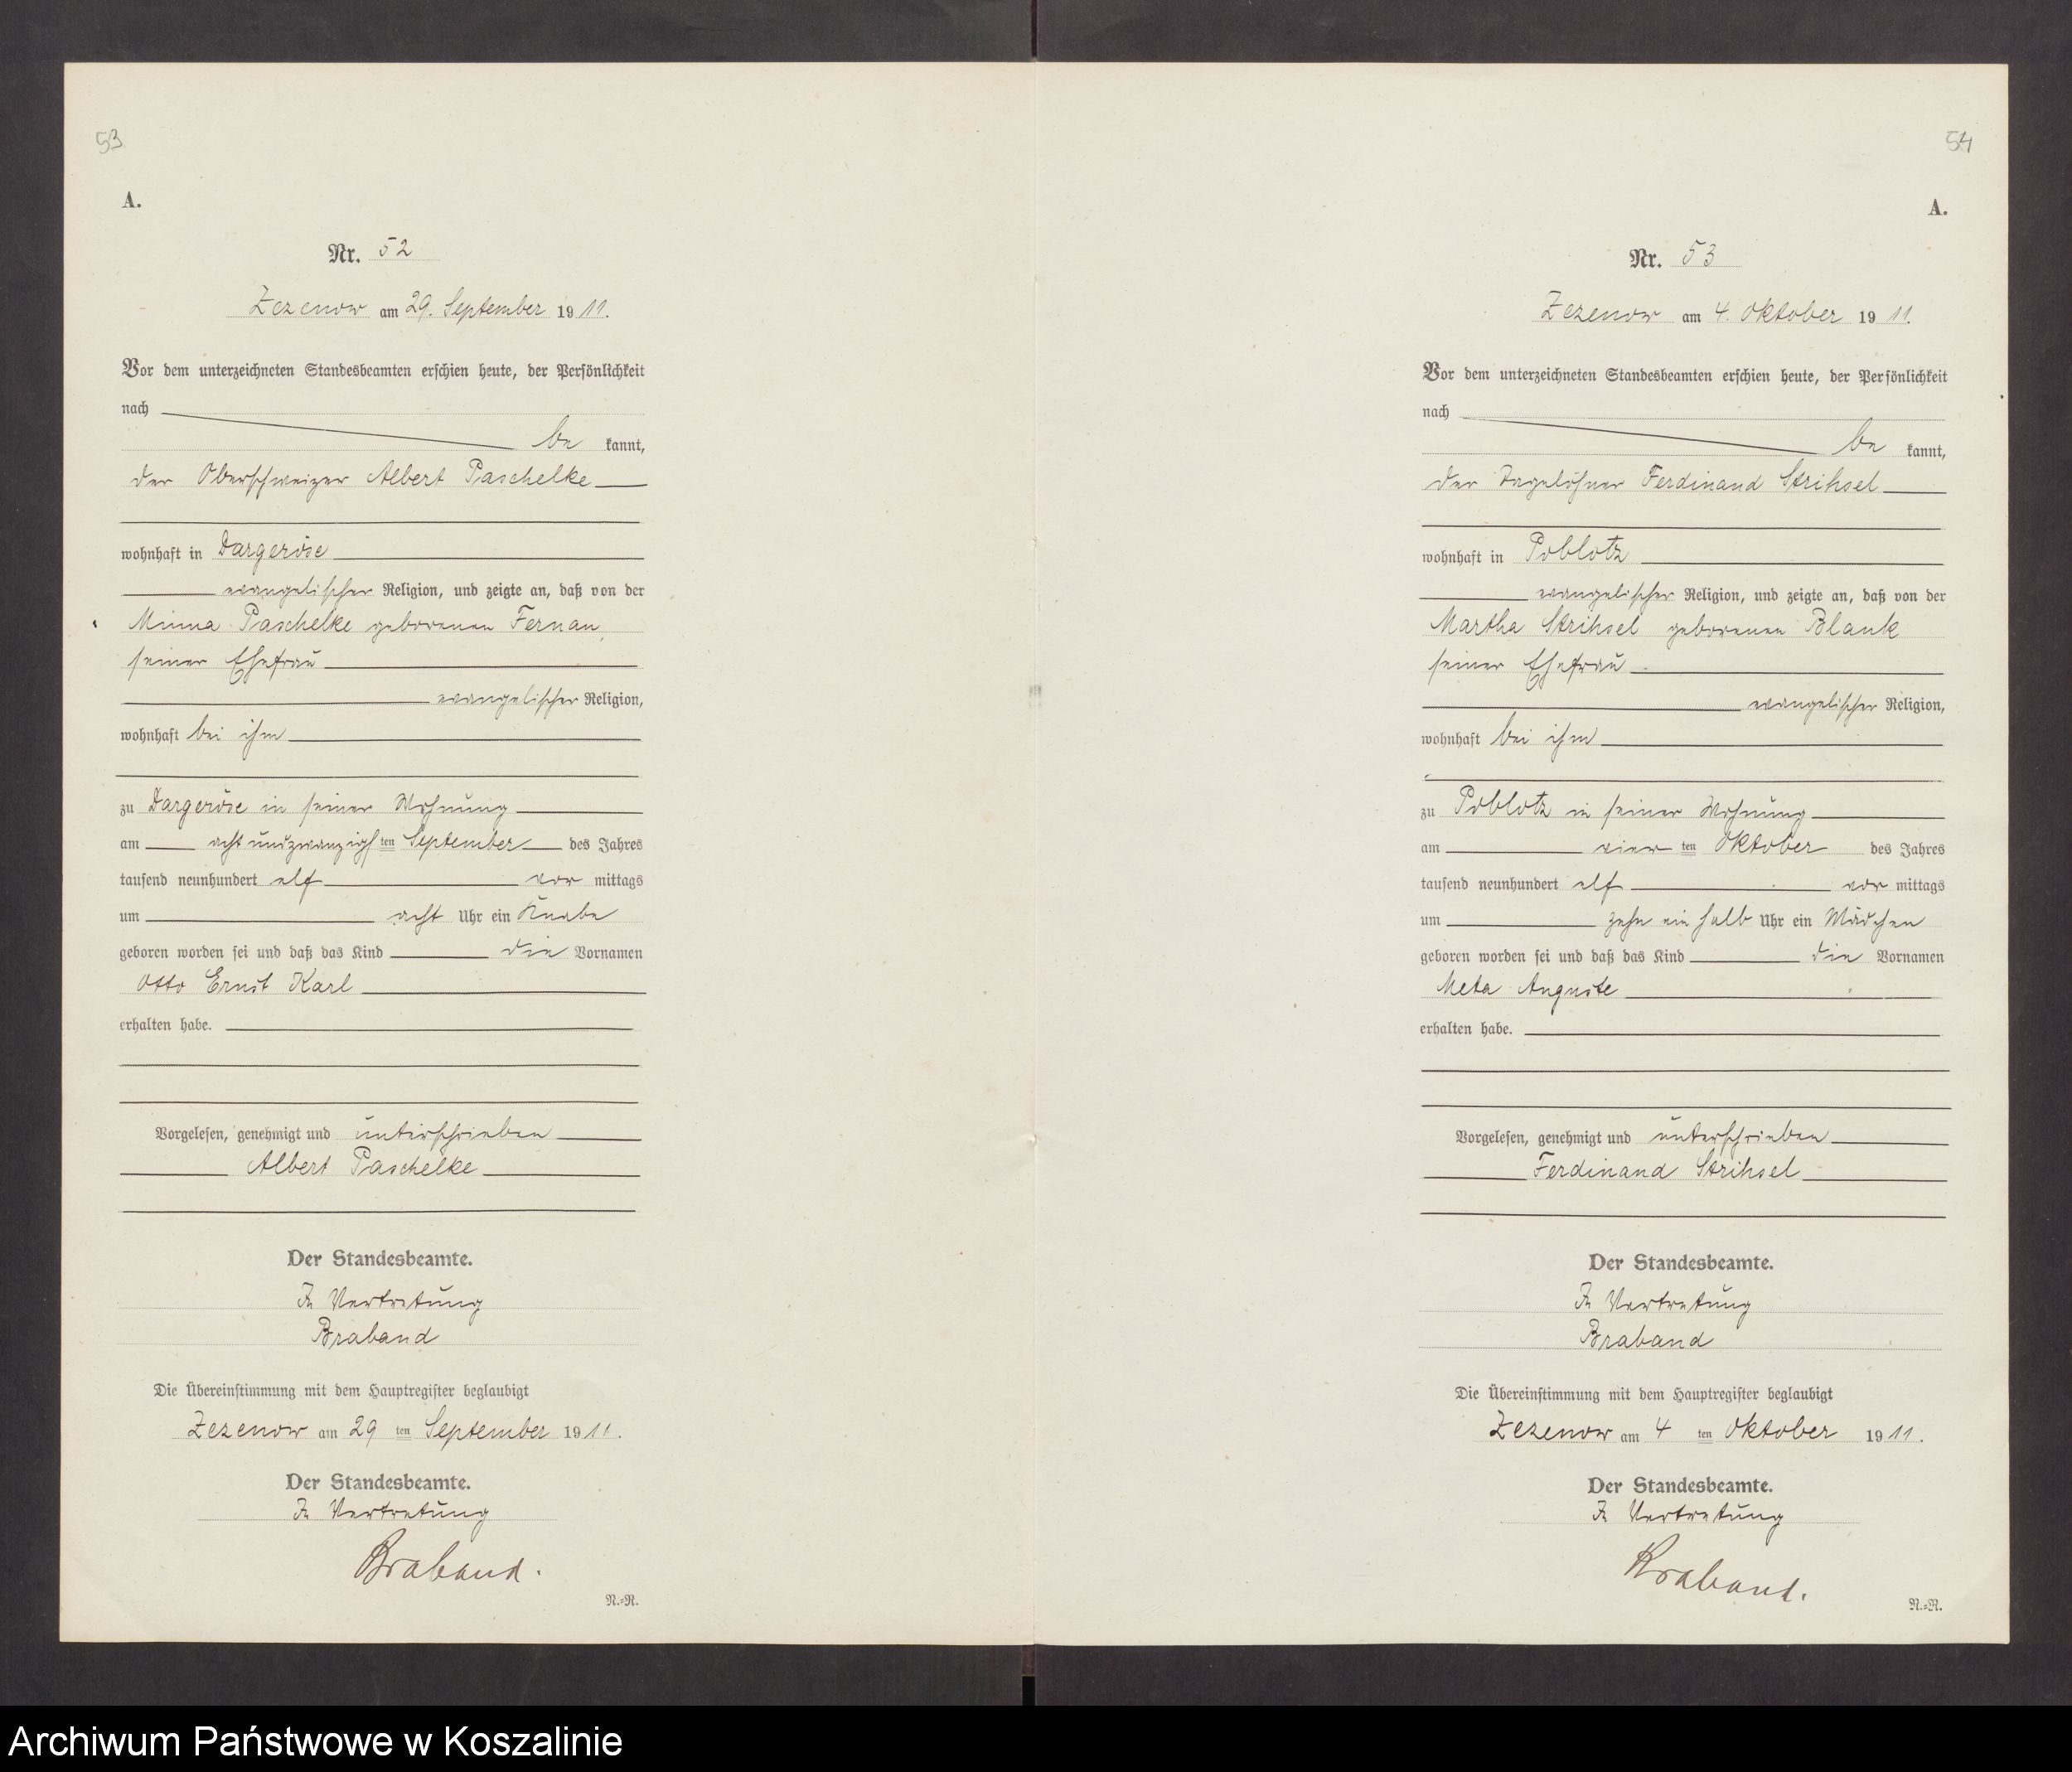 53
A.
Nr. 52
Zezenow am 29. September 1911.
Vor dem unterzeichneten Standesbeamten erschien heute, der Persönlichkeit
nach
be kannt,
der Oberschweizer Albert Paschelke
wohnhaft in Dargeröse
evangelischer Religion, und zeigte an, daß von der
Minna Paschelke geborenen Fernau,
seiner Ehefrau
evangelischer Religion,
wohnhaft bei ihm
zu Dargeröse in seiner Wohnung
am achtundzwanzigsten September des Jahres
tausend neunhundert elf vor mittags
um acht Uhr ein Knabe
geboren worden sei und daß das Kind die Vornamen
Otto Ernst Karl
erhalten habe.
Vorgelesen, genehmigt und unterschrieben
Albert Paschelke
Der Standesbeamte.
In Vertretung
Braband
Die Übereinstimmung mit dem Hauptregister beglaubigt
Zezenow am 29 ten September 1911.
Der Standesbeamte.
In Vertretung
Braband.
N.=R.
54
A.
Nr. 53
Zezenow am 4. Oktober 1911.
Vor dem unterzeichneten Standesbeamten erschien heute, der Persönlichkeit
nach
be kannt,
der Tagelöhner Ferdinand Strihsel
wohnhaft in Poblotz
evangelischer Religion, und zeigte an, daß von der
Martha Strihsel geborenen Blank
seiner Ehefrau
evangelischer Religion,
wohnhaft bei ihm
zu Poblotz in seiner Wohnung
am vier ten Oktober des Jahres
tausend neunhundert elf vor mittags
um zehn ein halb Uhr ein Mädchen
geboren worden sei und daß das Kind die Vornamen
Meta Auguste
erhalten habe.
Vorgelesen, genehmigt und unterschrieben
Ferdinand Strihsel
Der Standesbeamte.
In Vertretung
Braband
Die Übereinstimmung mit dem Hauptregister beglaubigt
Zezenow am 4 ten Oktober 1911.
Der Standesbeamte.
In Vertretung
Braband.
N.=R.
Archiwum Państwowe w Koszalinie